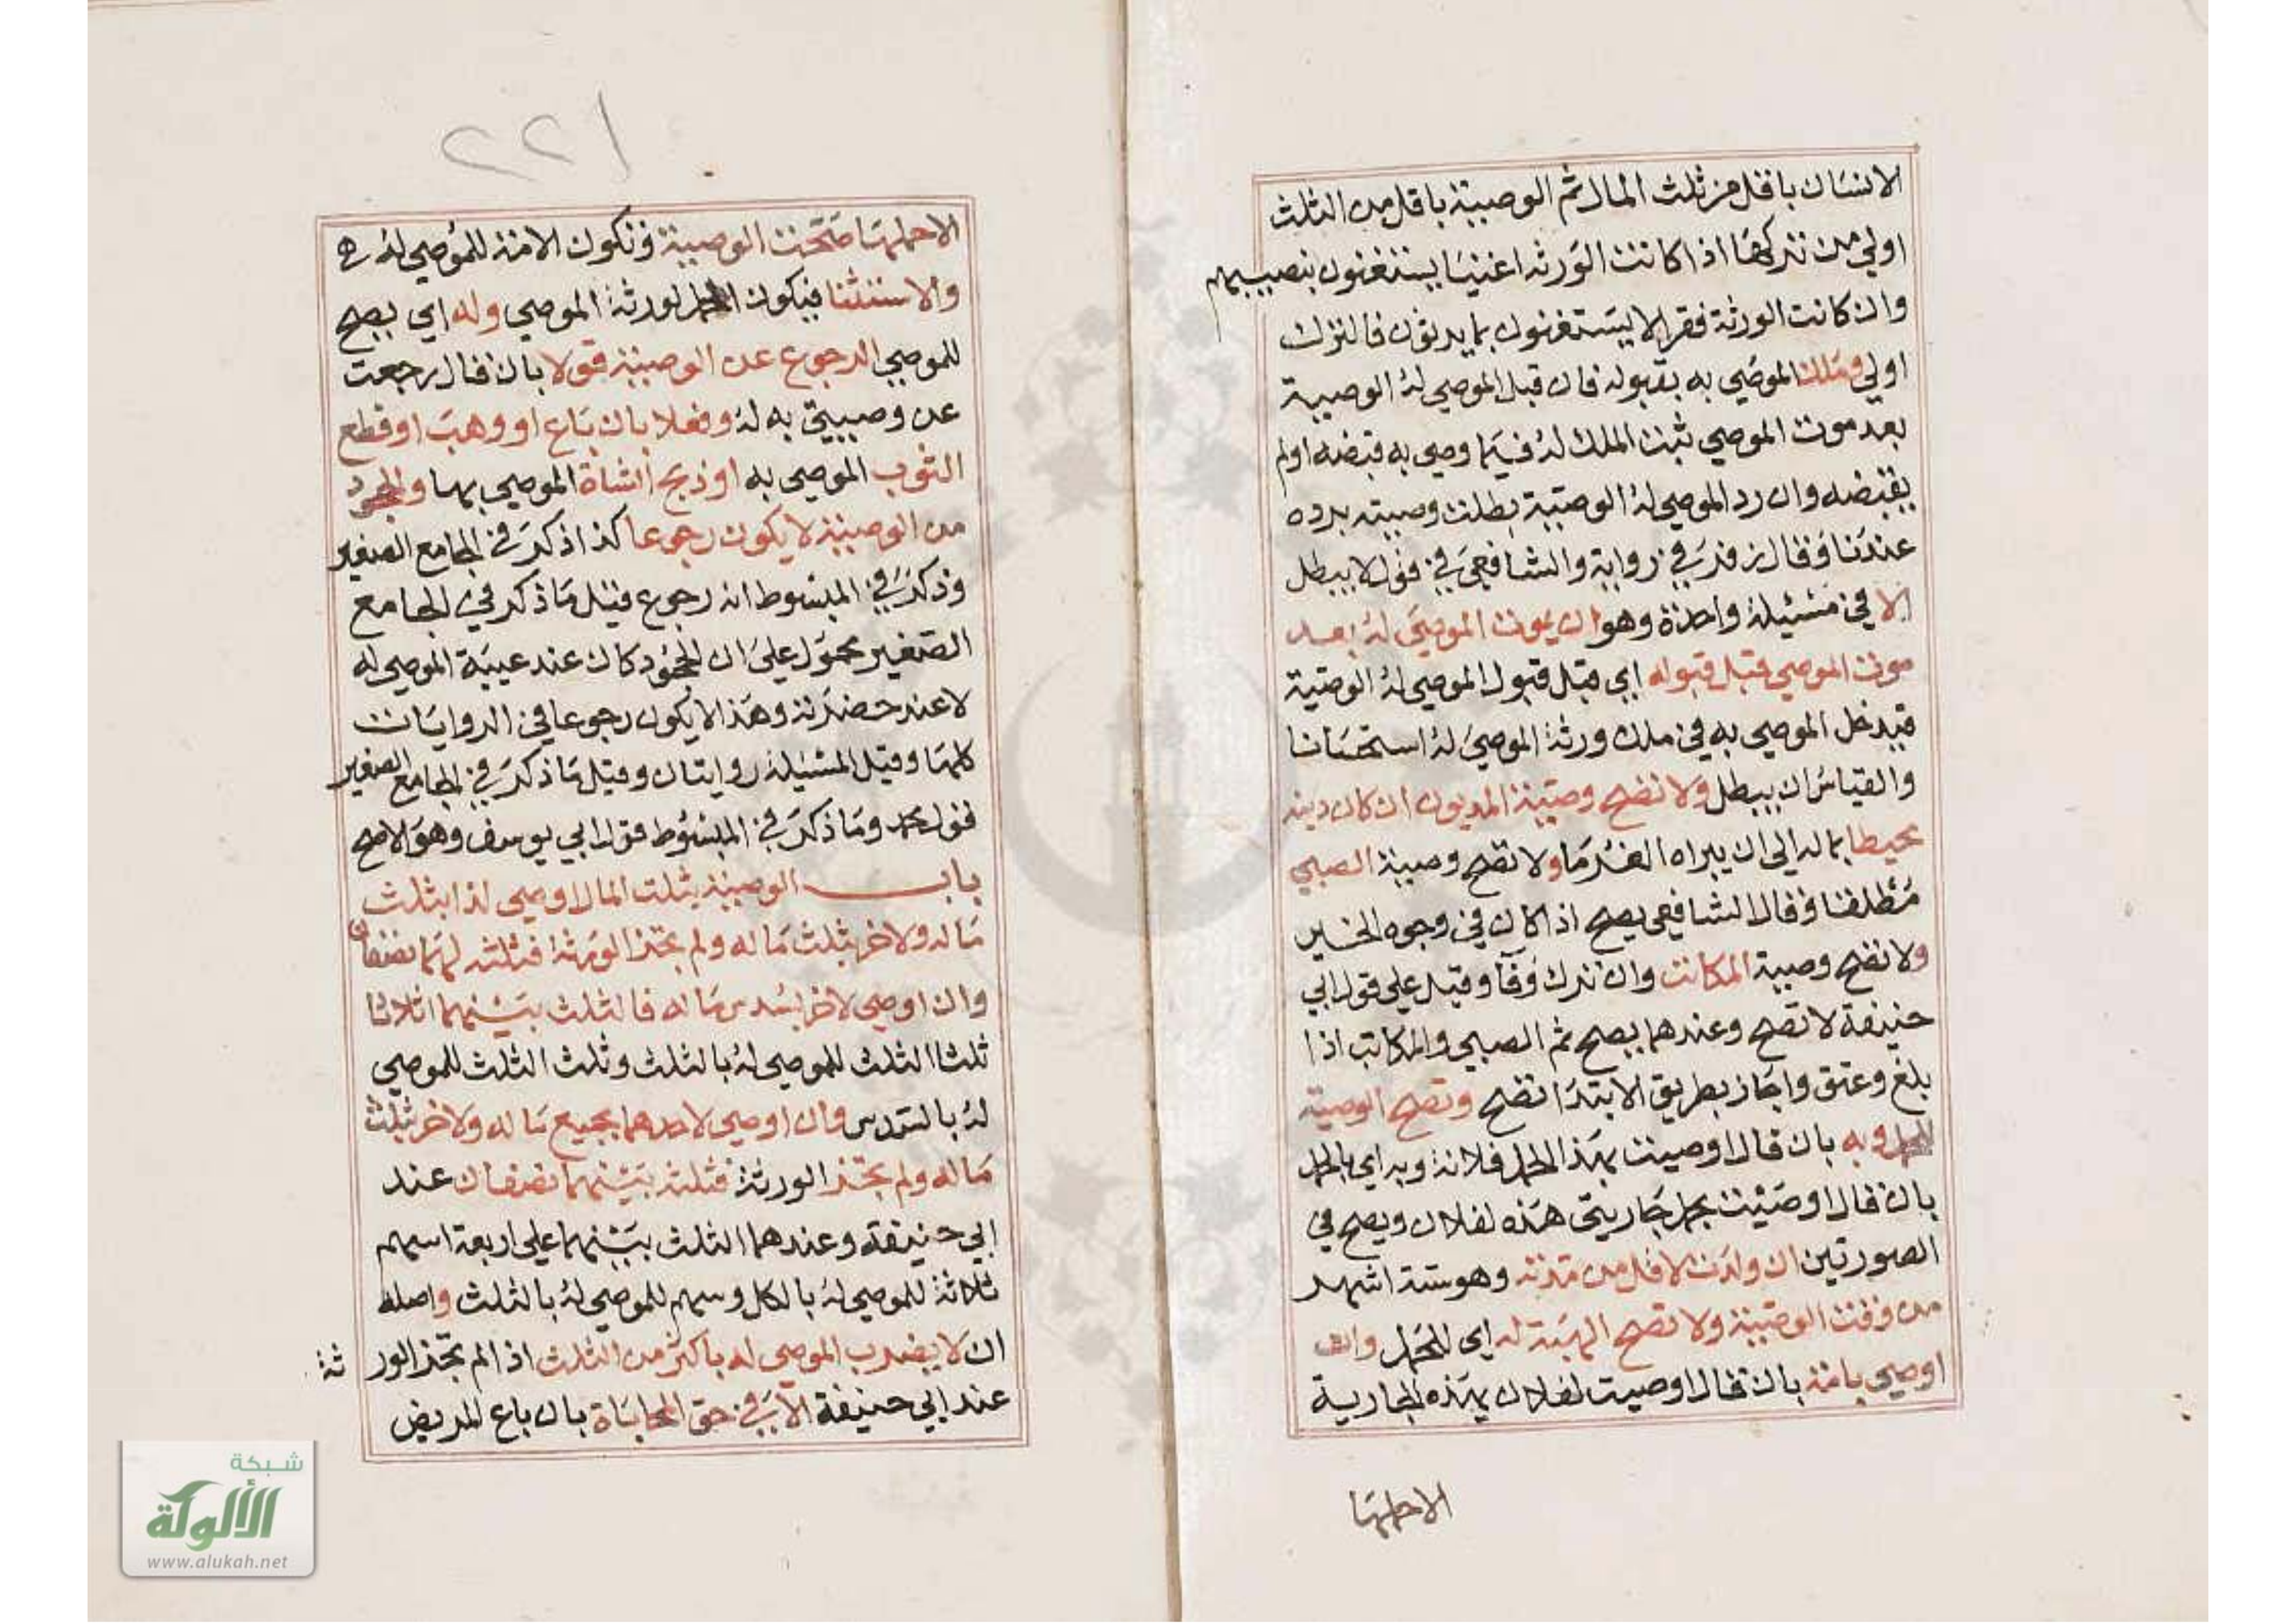 الانسان باقل من ثلث المال ثم الوصية باقل من الثلث
اولي من تركها اذا كانت الورثه اغنيا يستغنون بنصيبهم
وان كانت الورثة فقرا لا يستغنون بما يرثون فالترك
اولي وملك الموصي به بقبوله فان قبل الموصي له الوصية
بعد موت الموصي ثبت الملك له فيما وصي به قبضه اولم
يقبضه وان رد الموصي له الوصية بطلت وصيته برده
عندنا وقال زفر في رواية والشافعي في قول لا يبطل
الا في مسئيلة واحدة وهو ان يموت الموصي له بعد
موت الموصي قبل قبوله اي قبل قبول الموصي له الوصية
فيدخل الموصي به في ملك ورثة الموصي له استحسانا
والقياس ان يبطل ولا تصح وصية المديون ان كان دينه
محيطا بماله الي ان يبراه الغرما ولا تصح وصية الصبي
مطلقا وقال الشافعي يصح اذا كان في وجوه الخير
ولا تصح وصية المكاتب وان ترك وفآ وقيل علي قول ابي
حنيفة لا تصح وعندهما يصح ثم الصبي والمكاتب اذا
بلغ وعتق واجاز بطريق الابتدا تصح وتصح الوصية
للحمل وبه بان قال اوصيت بهذا الحمل فلانة وبه اي بالحمل
بان قال اوصيت بحمل جاريتي هذه لفلان ويصح في
الصورتين ان ولدت لاقل من مدته وهو ستة اشهر
من وقت الوصية ولا تصح الهبة له اي للحمل وان
اوصي بامة بان قال اوصيت لفلان بهذه الجارية
الاحملها
٢٢١
الاحملها صحت الوصية وتكون الامة للموصي له
والاستثنا فيكون الحمل لورثة الموصي وله اي يصح
للموصي الرجوع عن الوصية قولا بان قال رجعت
عن وصيتي به له وفعلا بان باع او وهب او قطع
الثوب الموصي به او ذبح الشاة الموصي بها والجحود
من الوصية لا يكون رجوعا كذا ذكر في الجامع الصغير
وذكر في المبسوط انه رجوع قيل ما ذكر في الجامع
الصغير محمول علي ان الجحود كان عند غيبة الموصي له
لا عند حضرته وهذا لا يكون رجوعا في الروايات
كلها وقيل المسئيلة روايتان وقيل ما ذكر في الجامع الصغير
قول محمد وما ذكر في المبسوط قول ابي يوسف وهو الاصح
باب الوصية بثلت المال اوصي لذا بثلث
ماله ولاخر بثلث ماله ولم تجز الورثة فثلثه لهما نصفان
وان اوصي لاخر بسدس ماله فالثلث بينهما اثلاثا
ثلثا الثلث للموصي له بالثلث وثلث الثلث للموصي
له بالسدس وان اوصي لاحدهما بجميع ماله ولاخر بثلث
ماله ولم تجز الورثة فثلثه بينهما نصفان عند
ابي حنيفه وعندهما الثلث بينهما علي اربعة اسهم
ثلاثة للموصي له بالكل وسهم للموصي له بالثلث واصله
ان لا يضرب الموصي له باكثر من الثلث اذا لم تجز الور ثة
عند ابي حنيفة الا في حق المحاباة بان باع المريض
شبكة
الألوكة
www.alukah.net